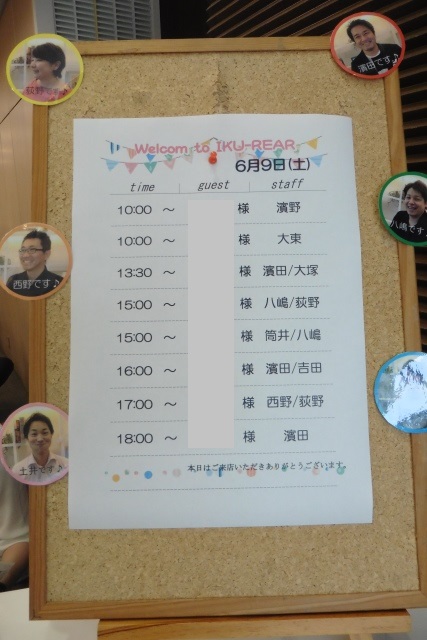 濱田です♪
荻野です♪
Welcom to IKU-REAR
6月9日(土)
time guest staff
10:00 ～ 様 濱野
10:00 ～ 様 大東
13:30 ～ 様 濱田/大塚
15:00 ～ 様 八嶋/荻野
15:00 ～ 様 筒井/八嶋
16:00 ～ 様 濱田/吉田
17:00 ～ 様 西野/荻野
18:00 ～ 様 濱田
本日はご来店いただきありがとうございます。
八嶋です
西野です♪
土井です♪